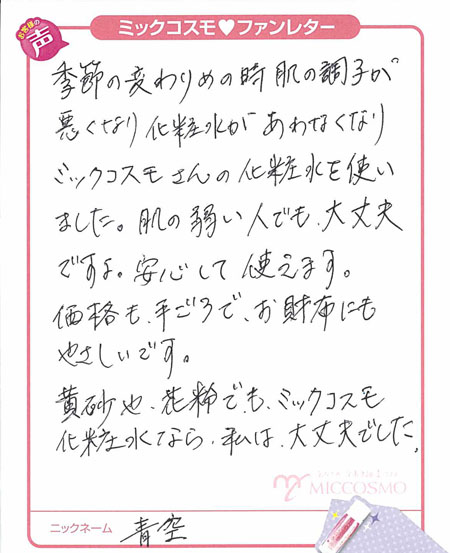 お客様の
声
ミックコスモ♥ファンレター
季節の変わりめの時肌の調子が
悪くなり化粧水があわなくなり
ミックコスモさんの化粧水を使い
ました。肌の弱い人でも、大丈夫
ですよ。安心して使えます。
価格も、手ごろで、お財布にも
やさしいです。
黄砂や、花粉でも、ミックコスモ
化粧水なら、私は、大丈夫でした。
MICCOSMO
ニックネーム 青空